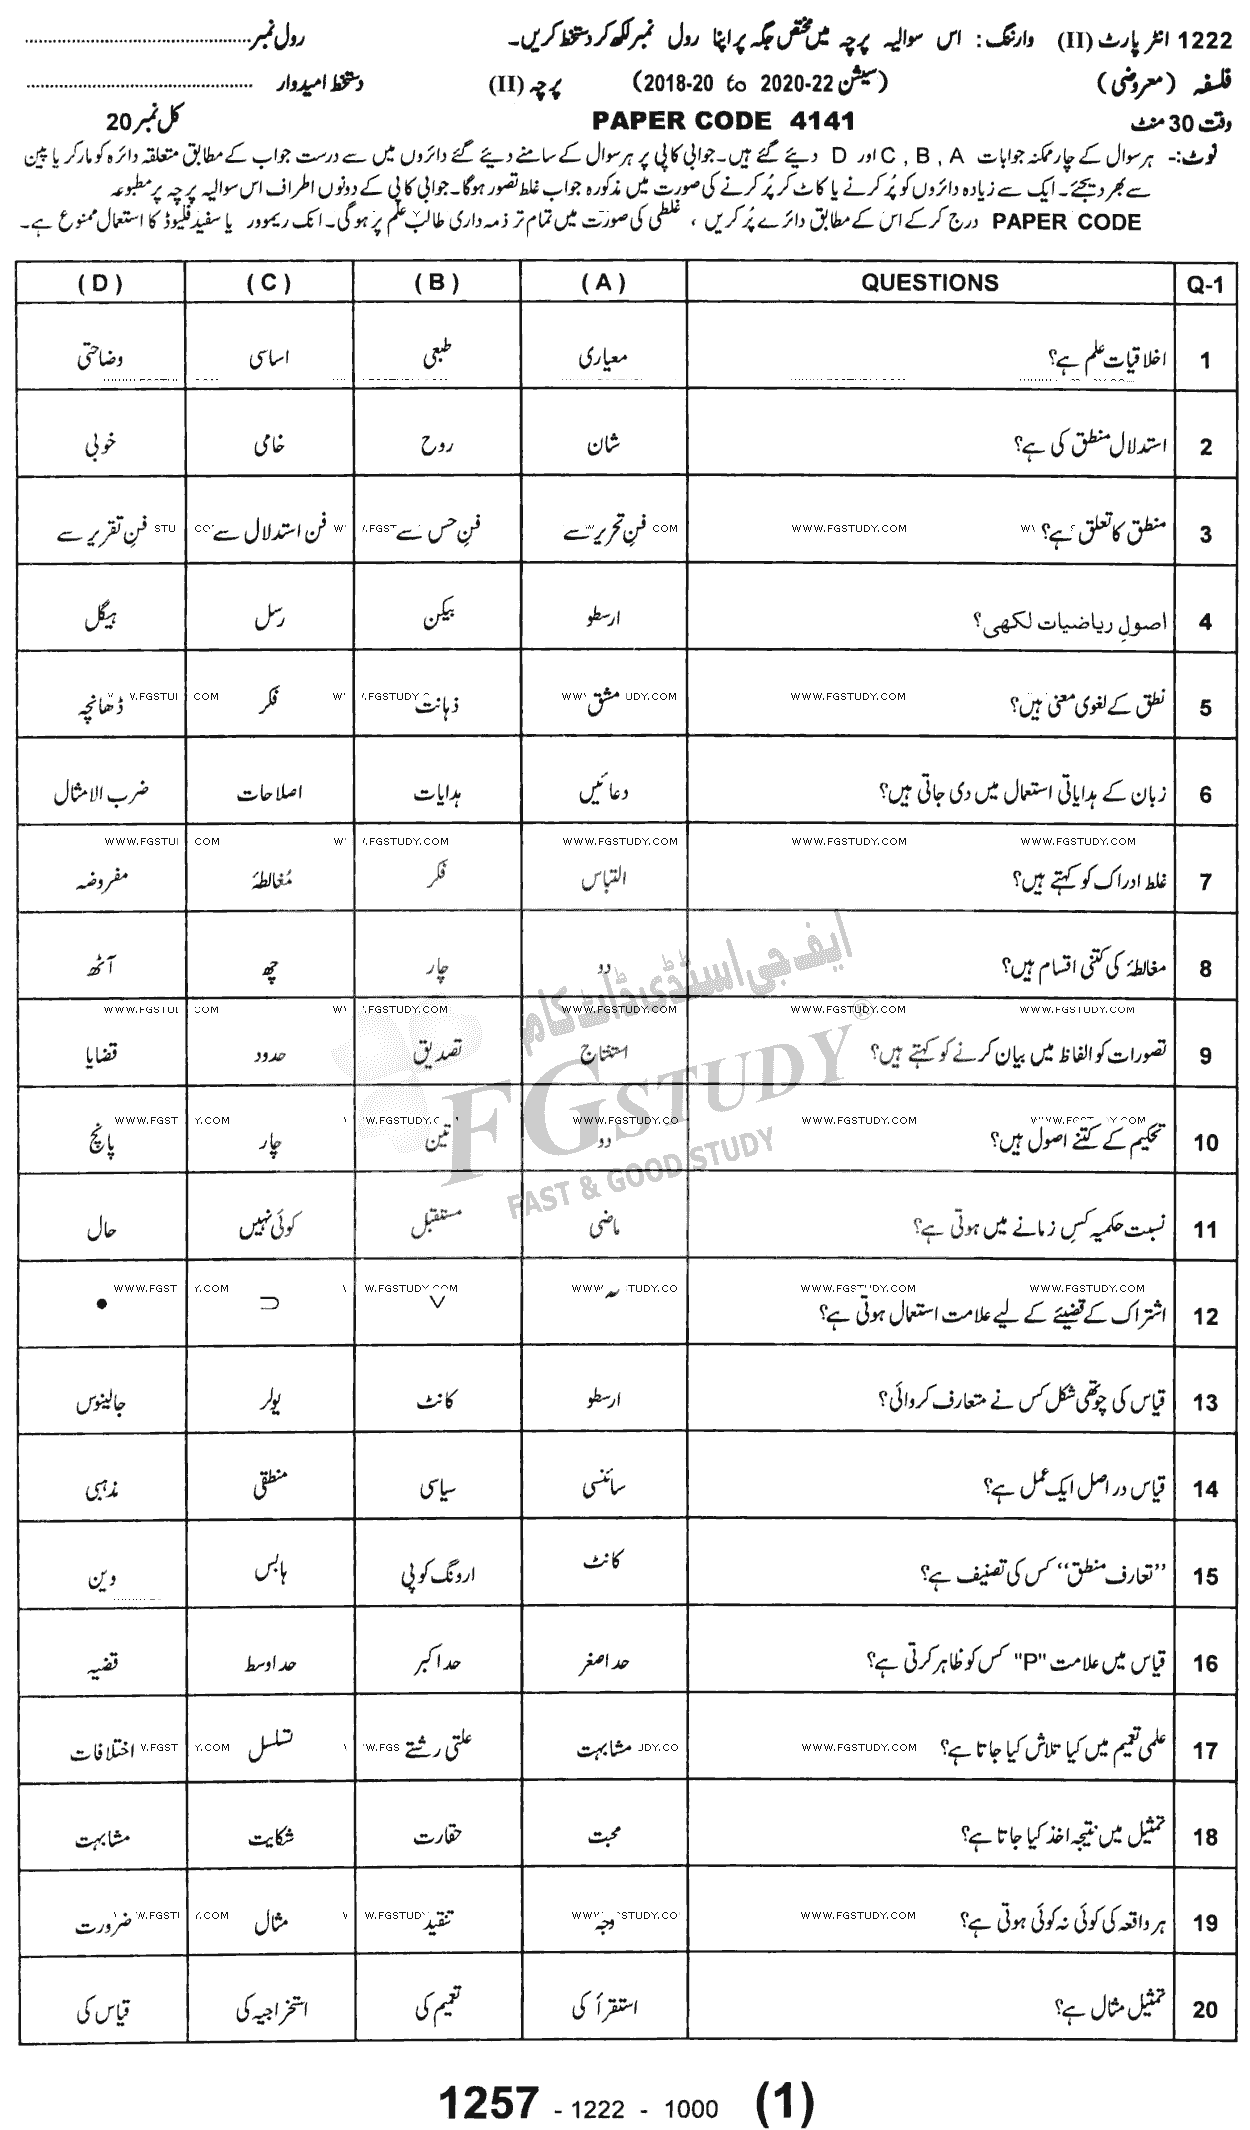 1222 انٹر پارٹ (II) وارننگ: اس سوالیہ پرچہ میں مختص جگہ پر اپنا رول نمبر لکھ کر دستخط کریں۔ رول نمبر
فلسفہ (معروضی) (سیشن 2020-22 to 2018-20) پرچہ (II) دستخط امیدوار
وقت 30 منٹ PAPER CODE 4141 کل نمبر 20
نوٹ:- ہر سوال کے چار ممکنہ جوابات A , B , C اور D دیئے گئے ہیں۔ جوابی کاپی پر ہر سوال کے سامنے دیئے گئے دائروں میں سے درست جواب کے مطابق متعلقہ دائرہ کو مارکر یا پین
سے بھر دیجئے۔ ایک سے زیادہ دائروں کو پُر کرنے یا کاٹ کر پُر کرنے کی صورت میں مذکورہ جواب غلط تصور ہوگا۔ جوابی کاپی کے دونوں اطراف اس سوالیہ پرچہ پر مطبوعہ
PAPER CODE درج کر کے اس کے مطابق دائرے پُر کریں ، غلطی کی صورت میں تمام تر ذمہ داری طالب علم پر ہوگی۔ انک ریموور یا سفید فلیوڈ کا استعمال ممنوع ہے۔
Q-1 QUESTIONS (A) (B) (C) (D)
1 اخلاقیات علم ہے؟ معیاری طبعی اساسی وضاحتی
2 استدلال منطق کی ہے؟ شان روح خامی خوبی
3 منطق کا تعلق ہے؟ فنِ تحریر سے فنِ حس سے فن استدلال سے فنِ تقریر سے
4 اصولِ ریاضیات لکھی؟ ارسطو بیکن رسل ہیگل
5 نطق کے لغوی معنی ہیں؟ مشق ذہانت فکر ڈھانچہ
6 زبان کے ہدایاتی استعمال میں دی جاتی ہیں؟ دعائیں ہدایات اصلاحات ضرب الامثال
7 غلط ادراک کو کہتے ہیں؟ القباس فکر مُغالطہٰ مفروضہ
8 مغالطہٰ کی کتنی اقسام ہیں؟ دو چار چھ آٹھ
9 تصورات کو الفاظ میں بیان کرنے کو کہتے ہیں؟ استنتاج تصدیق حدود قضایا
10 تحکیم کے کتنے اصول ہیں؟ دو تین چار پانچ
11 نسبت حکمیہ کسِ زمانے میں ہوتی ہے؟ ماضی مستقبل کوئی نہیں حال
12 اشتراک کے قضیئے کے لیے علامت استعمال ہوتی ہے؟ ~ ∨ ⊃ •
13 قیاس کی چوتھی شکل کس نے متعارف کروائی؟ ارسطو کانٹ یولر جالینوس
14 قیاس در اصل ایک عمل ہے؟ سائنسی سیاسی منطقی مذہبی
15 ’’تعارف منطق‘‘ کس کی تصنیف ہے؟ کانٹ ارونگ کوپی ہابس وین
16 قیاس میں علامت "P" کس کو ظاہر کرتی ہے؟ حد اصغر حد اکبر حد اوسط قضیہ
17 علمی تعمیم میں کیا تلاش کیا جاتا ہے؟ مشابہت علتی رشتے تسلسل اختلافات
18 تمثیل میں نتیجہ اخذ کیا جاتا ہے؟ محبت حقارت شکایت مشابہت
19 ہر واقعہ کی کوئی نہ کوئی ہوتی ہے؟ وجہ تنقید مثال ضرورت
20 تمثیل مثال ہے؟ استقرأ کی تعمیم کی استخراجیہ کی قیاس کی
ایف جی اسٹڈی ڈاٹ کام
FGSTUDY®
FAST & GOOD STUDY
WWW.FGSTUDY.COM
1257 - 1222 - 1000 (1)